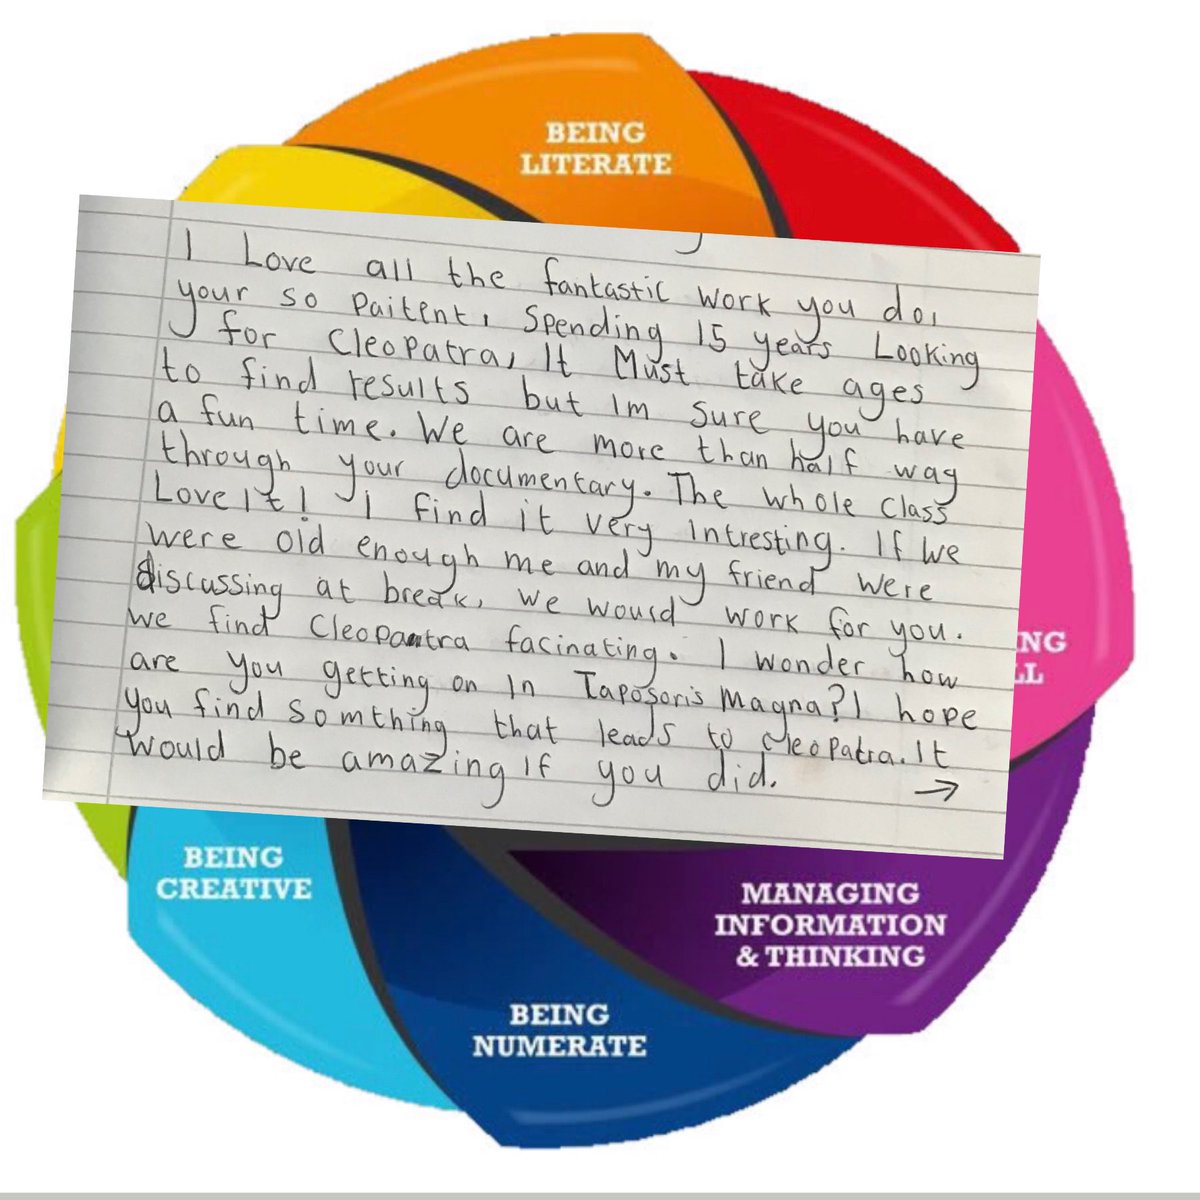 BEING
LITERATE
I Love all the fantastic work you do,
your so Paitent, Spending 15 years Looking
for Cleopatra, It Must take ages
to find results but Im sure you have
a fun time. We are more than half way
through your documentary. The whole class
Love It! I find it very Intresting. If we
were old enough me and my friend were
discussing at break, we would work for you.
we find Cleopatra facinating. I wonder how
are you getting on In Taposoris Magna? I hope
you find somthing that leads to Cleopatra. It
would be amazing If you did.
→
NG
LL
BEING
CREATIVE
MANAGING
INFORMATION
& THINKING
BEING
NUMERATE